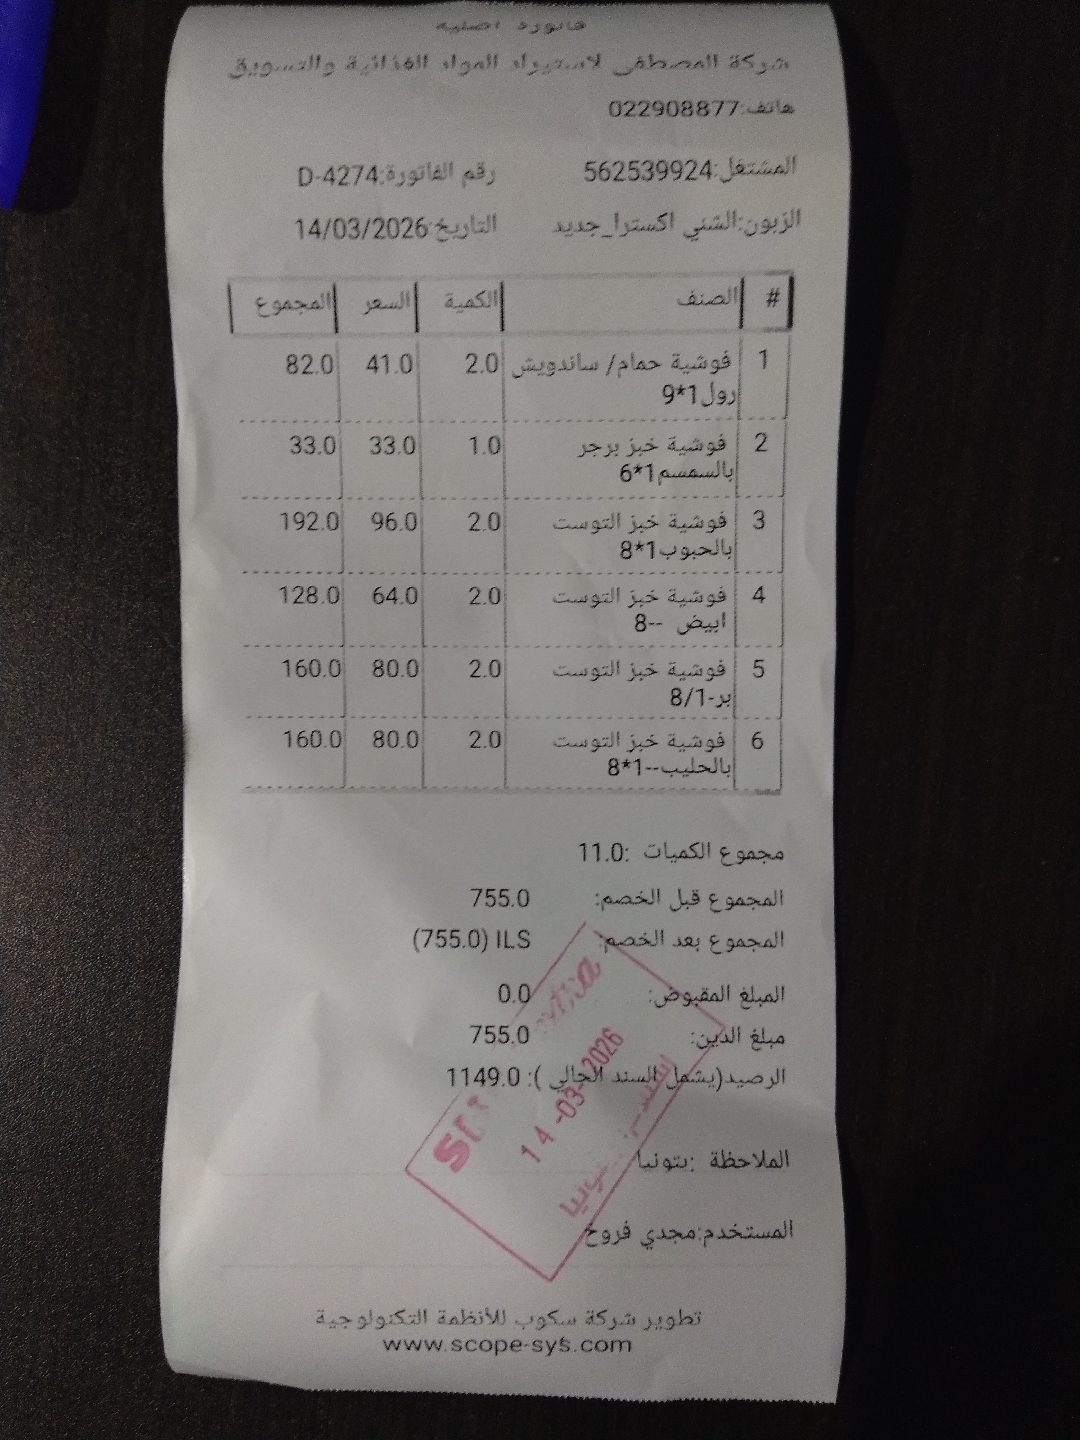 فاتورة اصلية
شركة المصطفى لاستيراد المواد الغذائية والتسويق
هاتف:022908877
المشتغل:562539924 رقم الفاتورة:D-4274
الزبون:الشني اكسترا_جديد التاريخ:14/03/2026
# الصنف الكمية السعر المجموع
1 فوشية حمام/ ساندويش 2.0 41.0 82.0
رول1*9
2 فوشية خبز برجر 1.0 33.0 33.0
بالسمسم1*6
3 فوشية خبز التوست 2.0 96.0 192.0
بالحبوب1*8
4 فوشية خبز التوست 2.0 64.0 128.0
ابيض --8
5 فوشية خبز التوست 2.0 80.0 160.0
بر-8/1
6 فوشية خبز التوست 2.0 80.0 160.0
بالحليب--1*8
مجموع الكميات :11.0
المجموع قبل الخصم: 755.0
المجموع بعد الخصم: (755.0) ILS
المبلغ المقبوض: 0.0
مبلغ الدين: 755.0
الرصيد(يشمل السند الحالي ): 1149.0
الملاحظة :بتونيا
المستخدم:مجدي فروخ
14 -03- 2026
تطوير شركة سكوب للأنظمة التكنولوجية
www.scope-sys.com